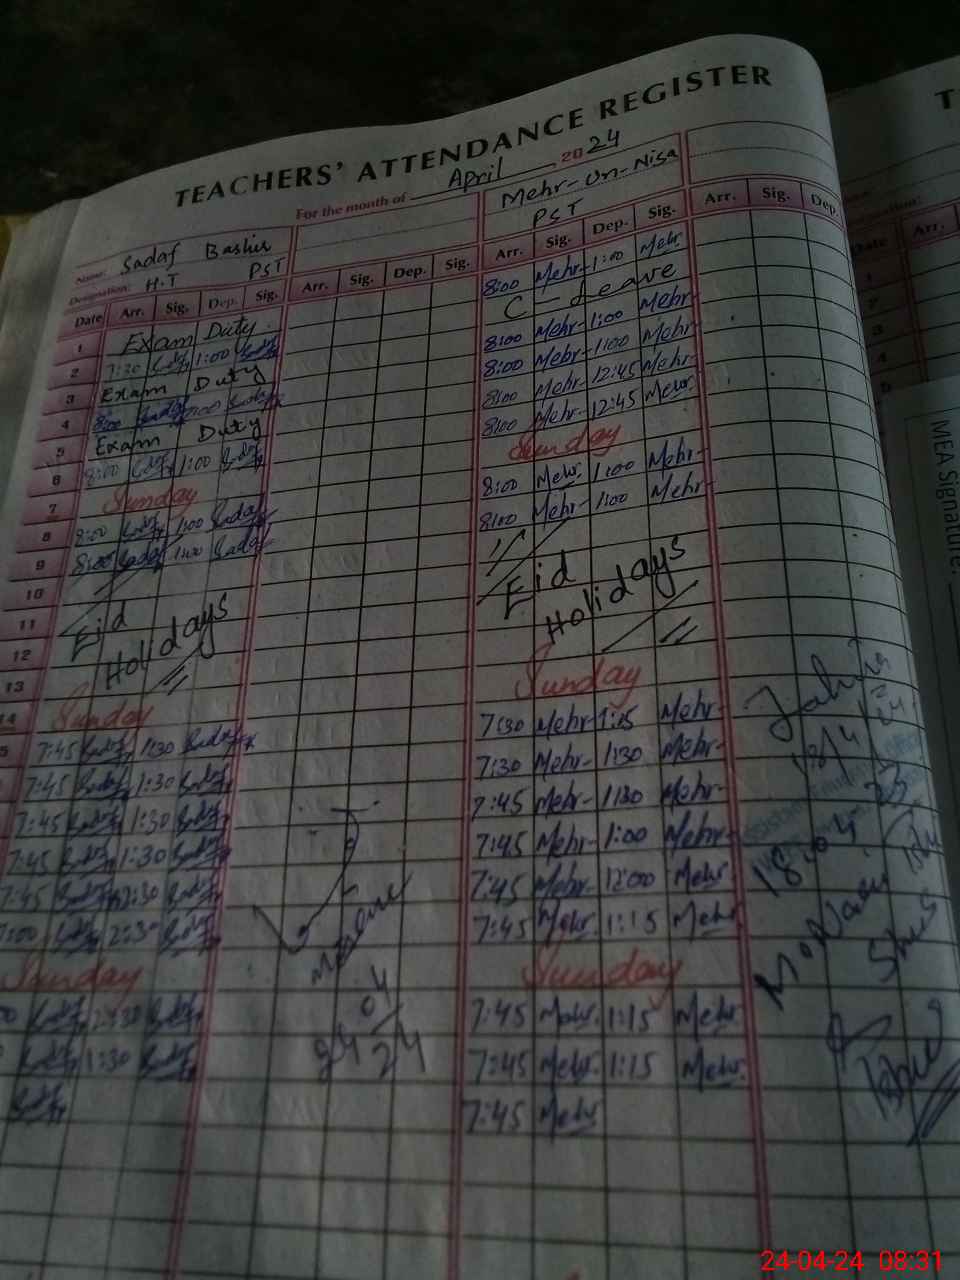 TEACHERS' ATTENDANCE REGISTER
For the month of April 2024
Name: Sadaf Bashir
Designation: H.T PST
Mehr-Un-Nisa
PST
Date Arr. Sig. Dep. Sig. Arr. Sig. Dep. Sig. Arr. Sig. Dep. Sig. Arr. Sig. Dep.
1 Exam Duty 8:00 Mehr 1:00 Mehr
2 7:30 Sadaf 1:00 Sadaf C-Leave
3 Exam Duty 8:00 Mehr 1:00 Mehr
4 8:00 Sadaf Sadaf 8:00 Mehr 1:00 Mehr
5 Exam Duty 8:00 Mehr 12:45 Mehr
6 8:00 Sadaf 1:00 Sadaf 8:00 Mehr 12:45 Mehr
7 Sunday Sunday
8 8:00 Sadaf 1:00 Sadaf 8:00 Mehr 1:00 Mehr
9 8:00 Sadaf 1:00 Sadaf 8:00 Mehr 1:00 Mehr
10
11 Eid Eid
12 Holidays Holidays
13
14 Sunday Sunday
5 7:45 Sadaf 1:30 Sadaf 7:30 Mehr 1:15 Mehr
7:45 Sadaf 1:30 Sadaf 7:30 Mehr 1:30 Mehr
7:45 Sadaf 1:30 Sadaf 7:45 Mehr 1:30 Mehr
7:45 Sadaf 1:30 Sadaf 7:45 Mehr 1:00 Mehr
7:45 Sadaf Sadaf 7:45 Mehr 12:00 Mehr
7:00 Sadaf 2:30 Sadaf 7:45 Mehr 1:15 Mehr
Sunday Sunday
Sadaf 2:30 Sadaf 7:45 Mehr 1:15 Mehr
Sadaf 1:30 Sadaf 7:45 Mehr 1:15 Mehr
Sadaf 7:45 Mehr
18/4/24
Date Arr.
1
2
3
4
5
MEA Signature
24-04-24 08:31